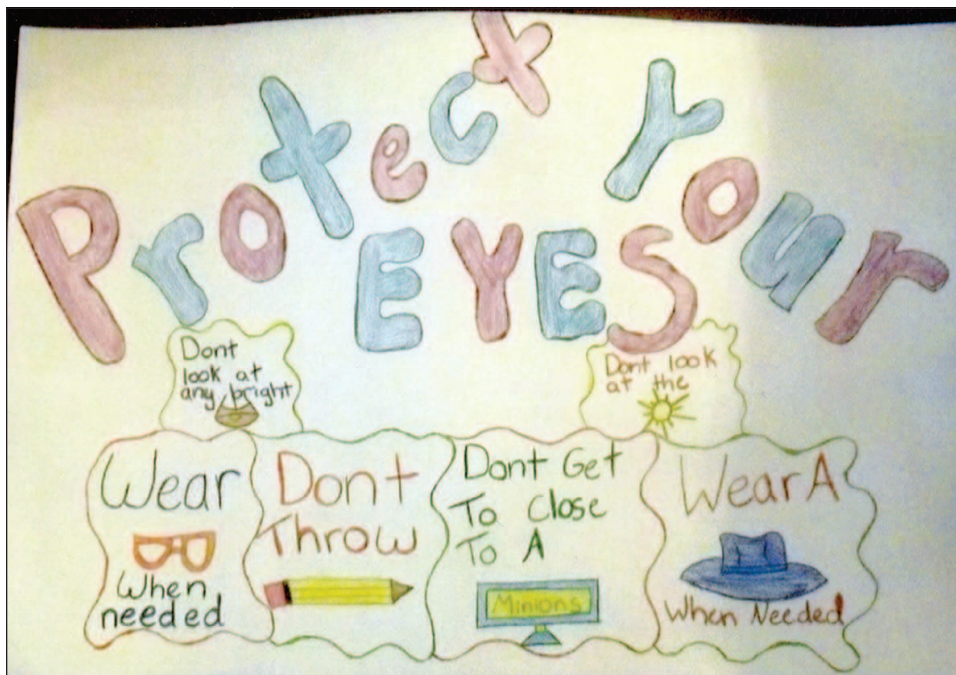 Protect Your
EYES
Dont
look at
any bright
Dont look
at the
Wear
When
needed
Dont
Throw
Dont Get
To Close
To A
Minions
Wear A
When Needed